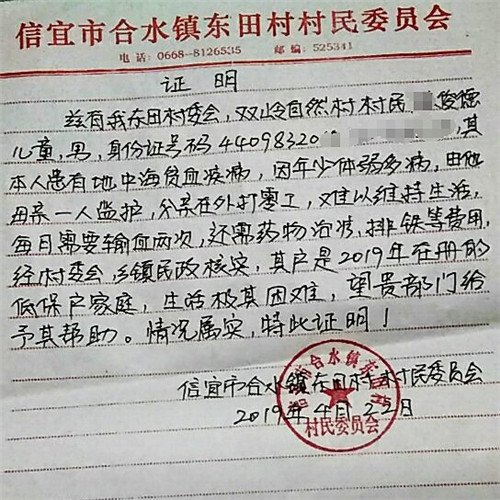 信宜市合水镇东田村村民委员会
电话:0668-8126535 邮编:525341
证明
兹有我东田村委会,双岭自然村村民 俊德
儿童,男,身份证号码44098320 ,其
本人患有地中海贫血疾病,因年少体弱多病,由他
母亲一人监护,父亲在外打零工,难以维持生活,
每日需要输血两次,还需药物治疗,排铁等费用,
经村委会、乡镇民政核实,其户是2019年在册的
低保户家庭,生活极其困难,望贵部门给
予其帮助。情况属实,特此证明!
信宜市合水镇东田村村民委员会
2019年4月22日
信宜市合水镇东田村
村民委员会